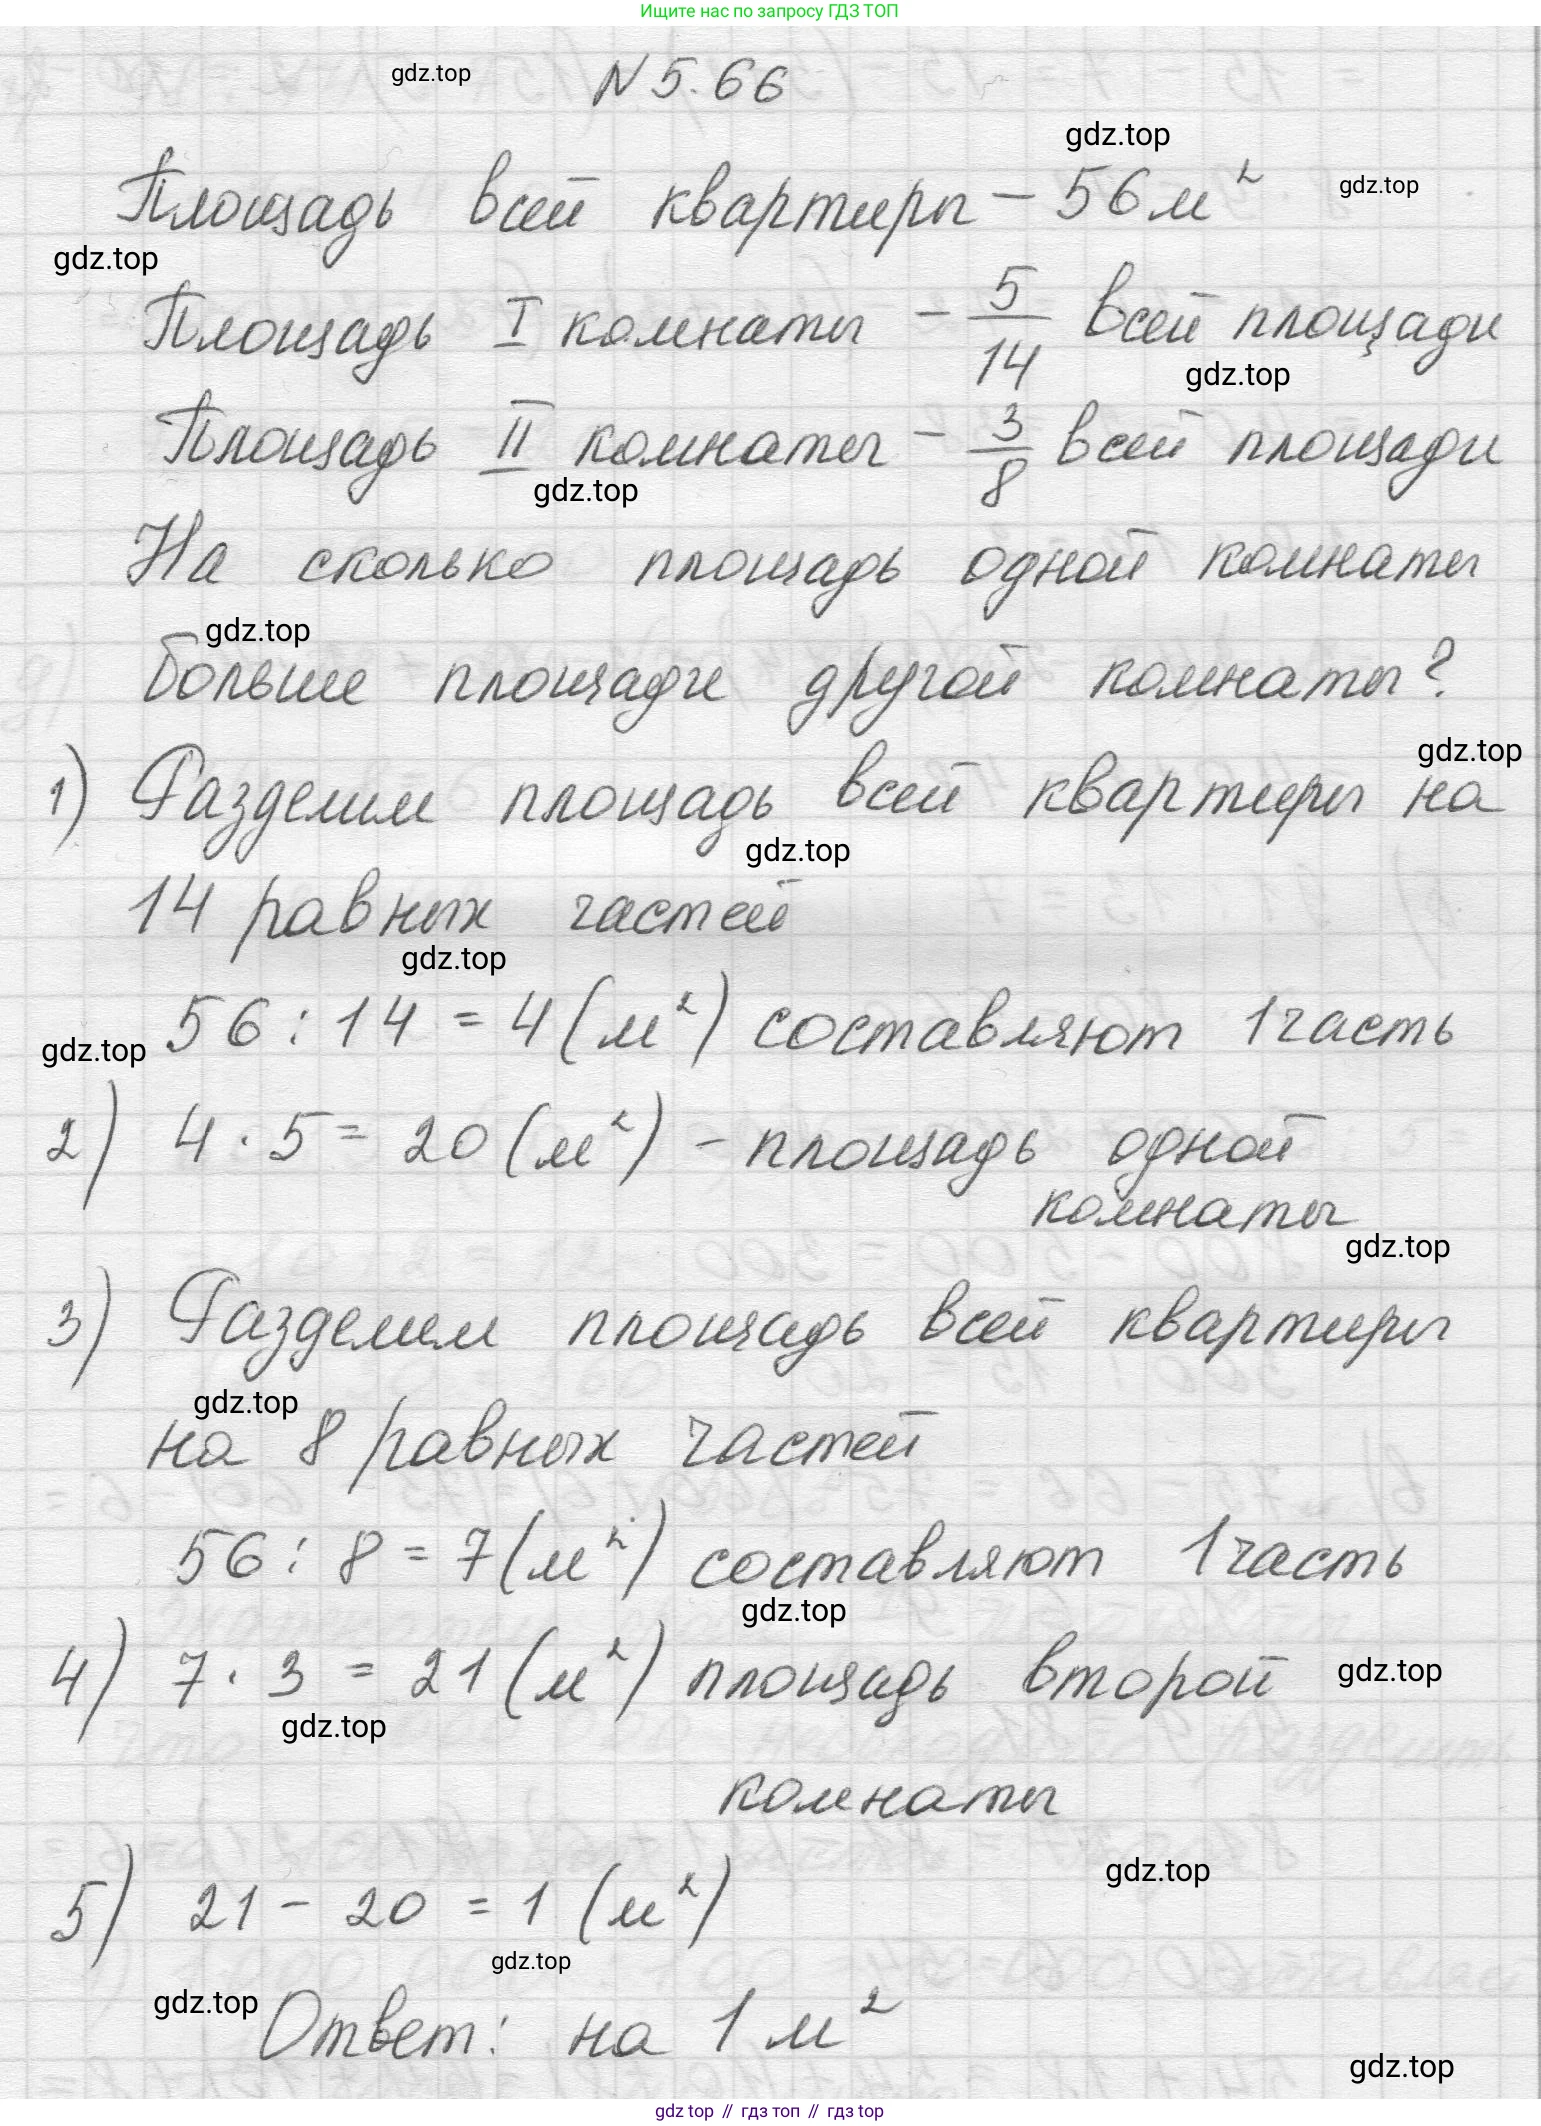 Ищите нас по запросу ГДЗ ТОП
gdz.top
N 5.66
gdz.top
Площадь всей квартиры – 56 м²
gdz.top
gdz.top
Площадь I комнаты – 5/14 всей площади
gdz.top
Площадь II комнаты – 3/8 всей площади
gdz.top
На сколько площадь одной комнаты
gdz.top
больше площади другой комнаты?
gdz.top
1) Разделим площадь всей квартиры на
gdz.top
14 равных частей
gdz.top
56 : 14 = 4 (м²) составляют 1 часть
gdz.top
2) 4 · 5 = 20 (м²) – площадь одной
комнаты
gdz.top
3) Разделим площадь всей квартиры
gdz.top
на 8 равных частей
56 : 8 = 7 (м²) составляют 1 часть
gdz.top
4) 7 · 3 = 21 (м²) площадь второй
gdz.top
gdz.top
комнаты
gdz.top
5) 21 – 20 = 1 (м²)
gdz.top
gdz.top
Ответ: на 1 м²
gdz.top
gdz top // гдз топ // гдз top